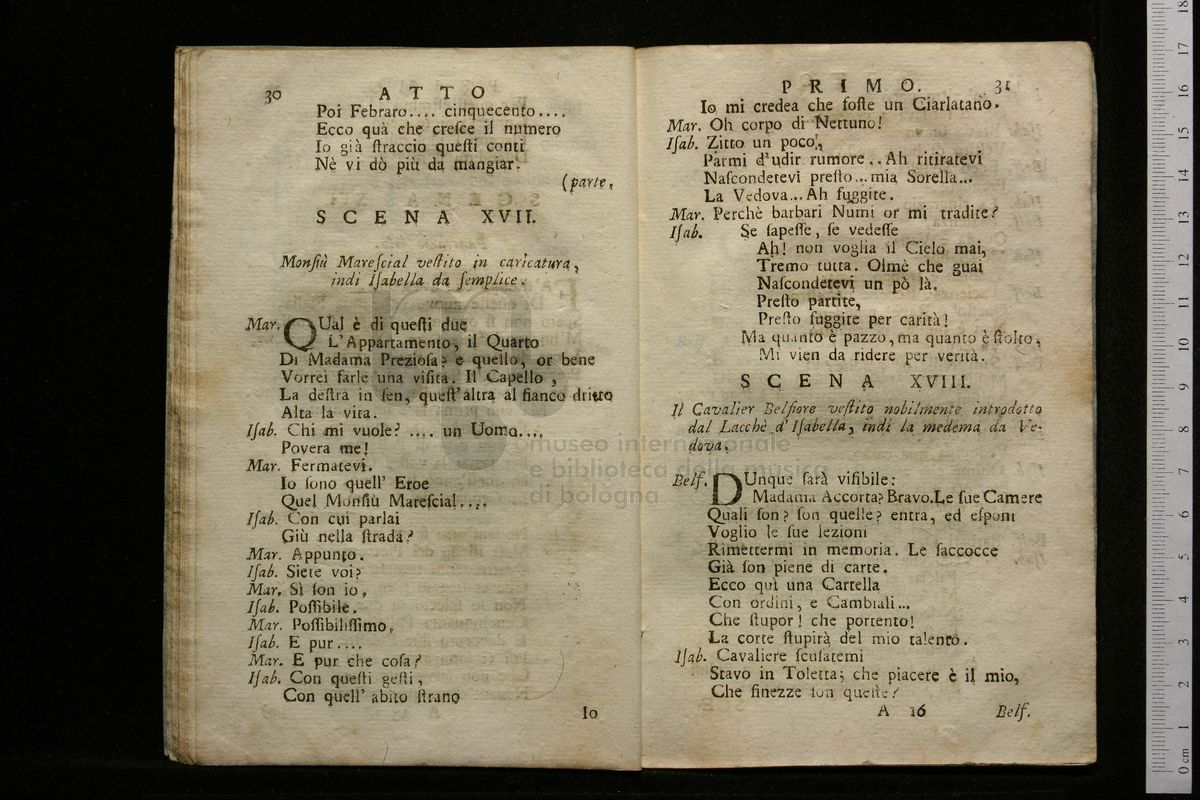 30 ATTO
Poi Febraro.... cinquecento....
Ecco quà che creſce il numero
Io già ſtraccio queſti conti
Nè vi dò più da mangiar.
(parte.
SCENA XVII.
Monſiù Mareſcial veſtito in caricatura,
indi Iſabella da ſemplice.
Mar. QUal è di queſti due
L'Appartamento, il Quarto
Di Madama Prezioſa? e quello, or bene
Vorrei farle una viſita. Il Capello,
La deſtra in ſen, queſt'altra al fianco dritto
Alta la vita.
Iſab. Chi mi vuole? .... un Uomo....
Povera me!
Mar. Fermatevi.
Io ſono quell' Eroe
Quel Monſiù Mareſcial....
Iſab. Con cui parlai
Giù nella ſtrada?
Mar. Appunto.
Iſab. Siete voi?
Mar. Sì ſon io,
Iſab. Poſſibile.
Mar. Poſſibiliſſimo,
Iſab. E pur....
Mar. E pur che coſa?
Iſab. Con queſti geſti,
Con quell' abito ſtrano
Io
PRIMO. 31
Io mi credea che foſte un Ciarlatano.
Mar. Oh corpo di Nettuno!
Iſab. Zitto un poco,
Parmi d'udir rumore.. Ah ritiratevi
Naſcondetevi preſto...mia Sorella...
La Vedova... Ah fuggite.
Mar. Perchè barbari Numi or mi tradite?
Iſab. Se ſapeſſe, ſe vedeſſe
Ah! non voglia il Cielo mai,
Tremo tutta. Oimè che guai
Naſcondetevi un pò là.
Preſto partite,
Preſto fuggite per carità!
Ma quanto è pazzo, ma quanto è ſtolto,
Mi vien da ridere per verità.
SCENA XVIII.
Il Cavalier Belfiore veſtito nobilmente introdotto
dal Lacchè d'Iſabella, indi la medema da Ve-
dova.
Belf. DUnque ſarà viſibile:
Madama Accorta? Bravo. Le ſue Camere
Quali ſon? ſon quelle? entra, ed eſponi
Voglio le ſue lezioni
Rimettermi in memoria. Le ſaccocce
Già ſon piene di carte.
Ecco quì una Cartella
Con ordini, e Cambiali...
Che ſtupor! che portento!
La corte ſtupirà del mio talento.
Iſab. Cavaliere ſcuſatemi
Stavo in Toletta; che piacere è il mio,
Che finezze ſon queſte?
A 16 Belf.
museo internazionale
e biblioteca della musica
di bologna
0 cm 1 2 3 4 5 6 7 8 9 10 11 12 13 14 15 16 17 18